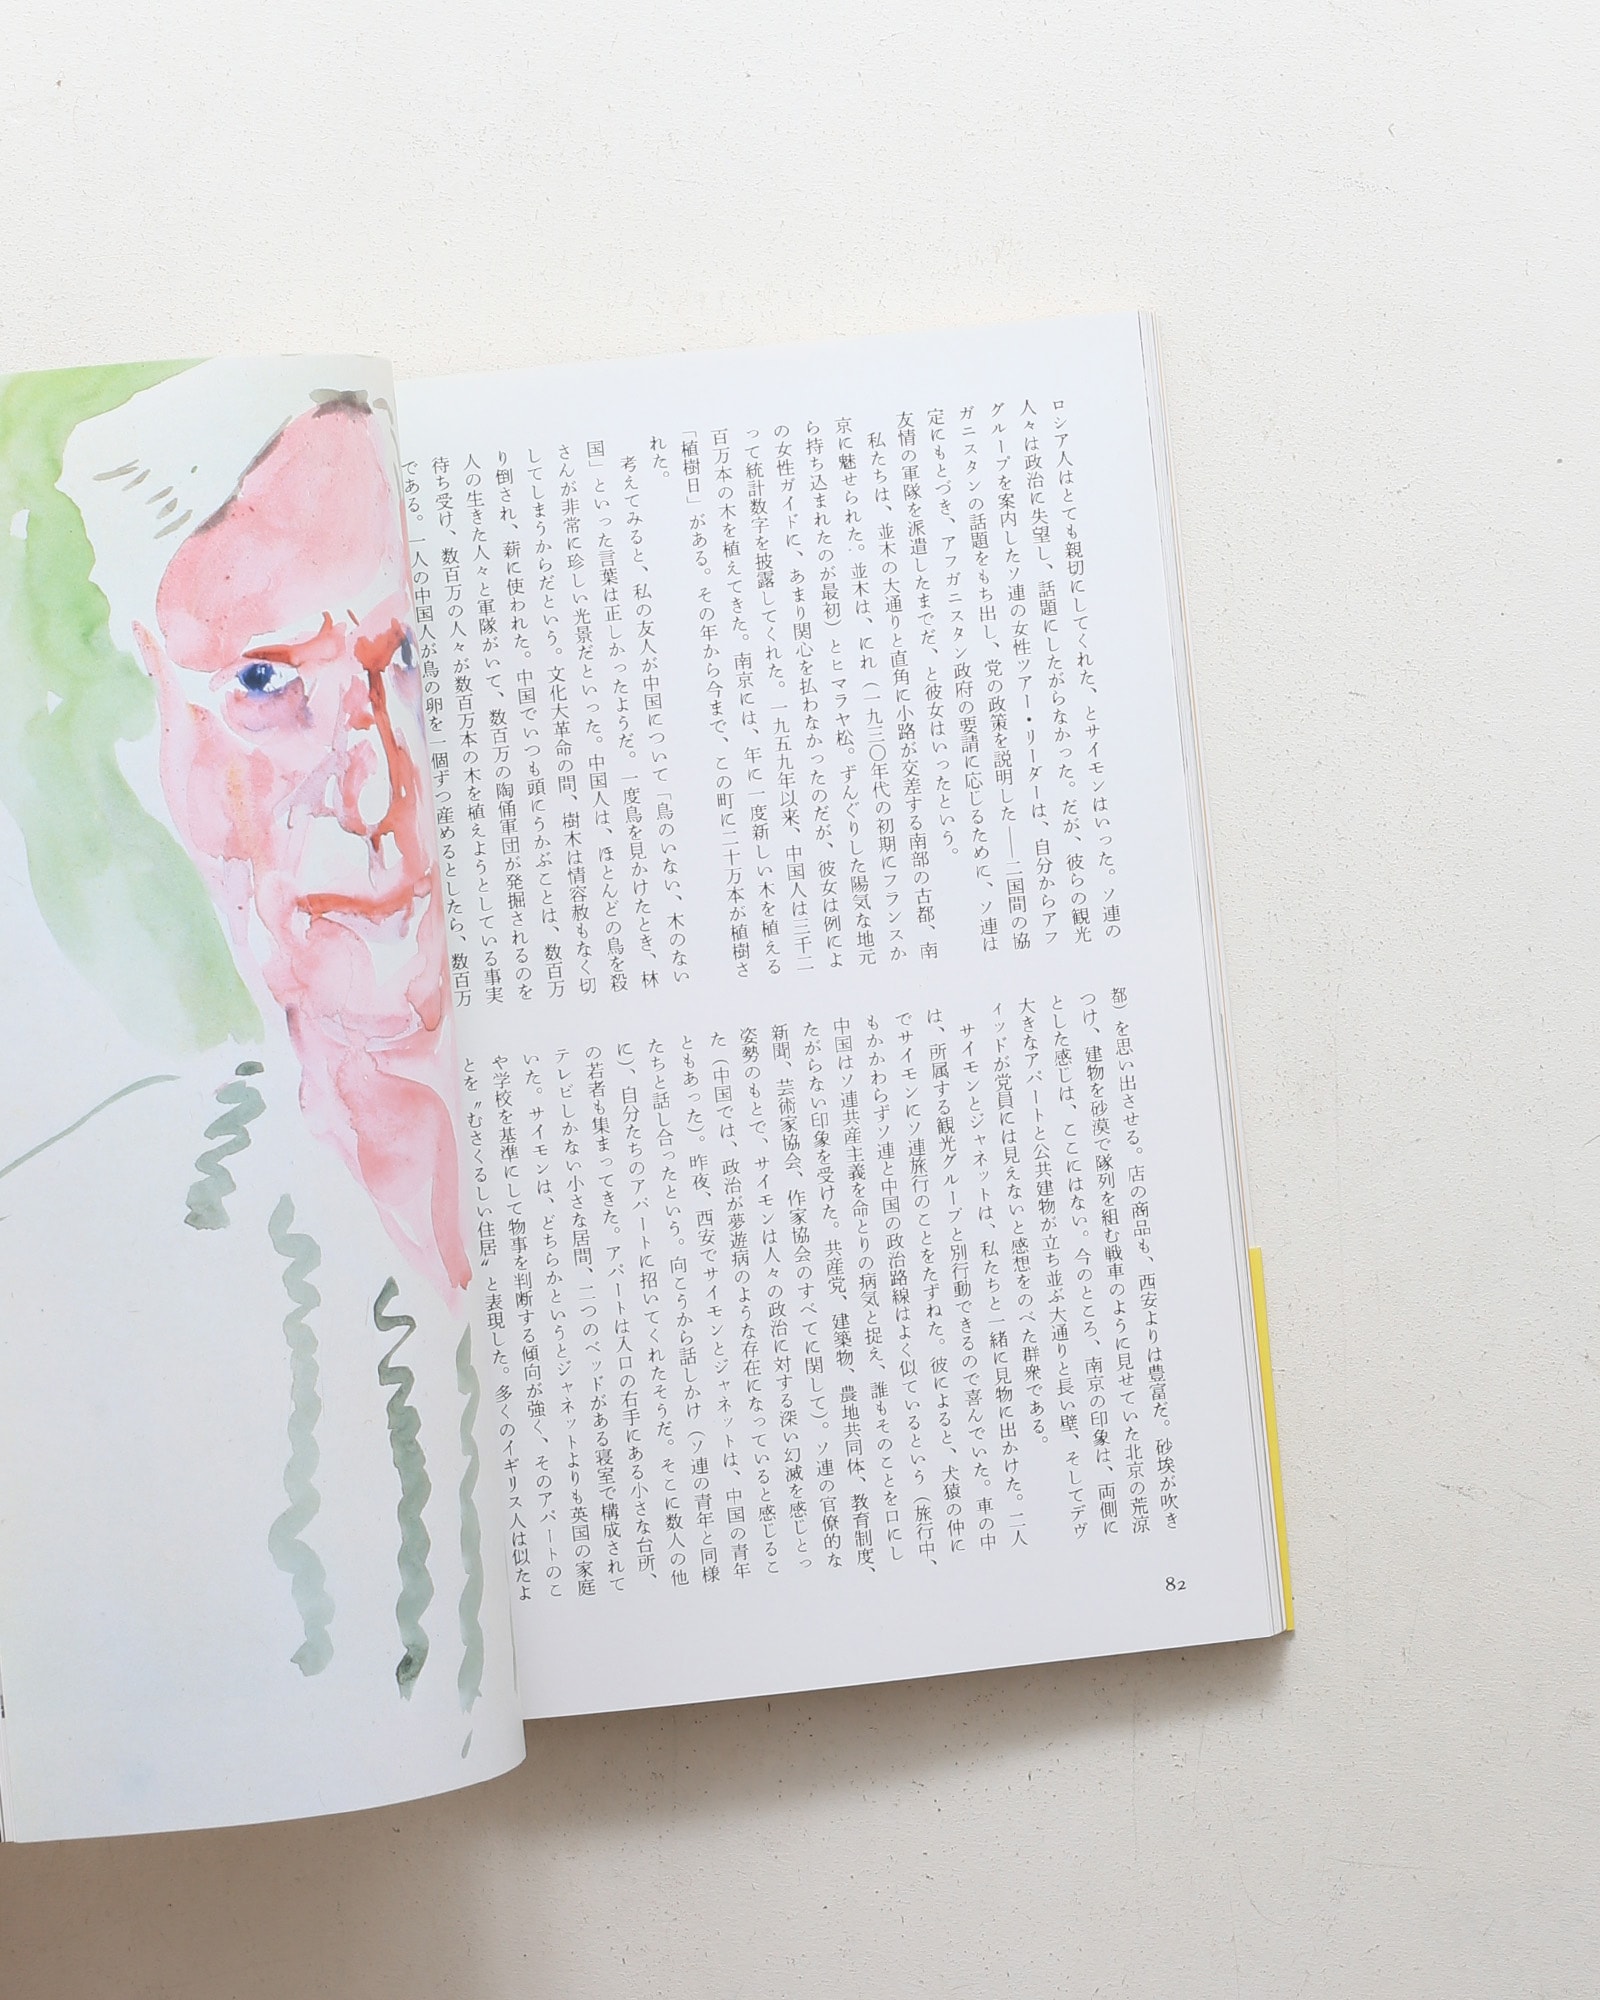 ロシア人はとても親切にしてくれた、とサイモンはいった。ソ連の
人々は政治に失望し、話題にしたがらなかった。だが、彼らの観光
グループを案内したソ連の女性ツアー・リーダーは、自分からアフ
ガニスタンの話題をもち出し、党の政策を説明した——二国間の協
定にもとづき、アフガニスタン政府の要請に応じるために、ソ連は
友情の軍隊を派遣したまでだ、と彼女はいったという。
私たちは、並木の大通りと直角に小路が交差する南部の古都、南
京に魅せられた。並木は、にれ(一九三〇年代の初期にフランスか
ら持ち込まれたのが最初)とヒマラヤ松。ずんぐりした陽気な地元
の女性ガイドに、あまり関心を払わなかったのだが、彼女は例によ
って統計数字を披露してくれた。一九五九年以来、中国人は三千二
百万本の木を植えてきた。南京には、年に一度新しい木を植える
「植樹日」がある。その年から今まで、この町に二十万本が植樹さ
れた。
考えてみると、私の友人が中国について「鳥のいない、木のない
国」といった言葉は正しかったようだ。一度鳥を見かけたとき、林
さんが非常に珍しい光景だといった。中国人は、ほとんどの鳥を殺
してしまうからだという。文化大革命の間、樹木は情容赦もなく切
り倒され、薪に使われた。中国でいつも頭にうかぶことは、数百万
人の生きた人々と軍隊がいて、数百万の陶俑軍団が発掘されるのを
待ち受け、数百万の人々が数百万本の木を植えようとしている事実
である。一人の中国人が鳥の卵を一個ずつ産めるとしたら、数百万
都)を思い出させる。店の商品も、西安よりは豊富だ。砂埃が吹き
つけ、建物を砂漠で隊列を組む戦車のように見せていた北京の荒涼
とした感じは、ここにはない。今のところ、南京の印象は、両側に
大きなアパートと公共建物が立ち並ぶ大通りと長い壁、そしてデヴ
ィッドが党員には見えないと感想をのべた群衆である。
サイモンとジャネットは、私たちと一緒に見物に出かけた。二人
は、所属する観光グループと別行動できるので喜んでいた。車の中
でサイモンにソ連旅行のことをたずねた。彼によると、犬猿の仲に
もかかわらずソ連と中国の政治路線はよく似ているという(旅行中、
中国はソ連共産主義を命とりの病気と捉え、誰もそのことを口にし
たがらない印象を受けた。共産党、建築物、農地共同体、教育制度、
新聞、芸術家協会、作家協会のすべてに関して)。ソ連の官僚的な
姿勢のもとで、サイモンは人々の政治に対する深い幻滅を感じとっ
た(中国では、政治が夢遊病のような存在になっていると感じるこ
ともあった)。昨夜、西安でサイモンとジャネットは、中国の青年
たちと話し合ったという。向こうから話しかけ(ソ連の青年と同様
に)、自分たちのアパートに招いてくれたそうだ。そこに数人の他
の若者も集まってきた。アパートは入口の右手にある小さな台所、
テレビしかない小さな居間、二つのベッドがある寝室で構成されて
いた。サイモンは、どちらかというとジャネットよりも英国の家庭
や学校を基準にして物事を判断する傾向が強く、そのアパートのこ
とを〝むさくるしい住居〟と表現した。多くのイギリス人は似たよ
82